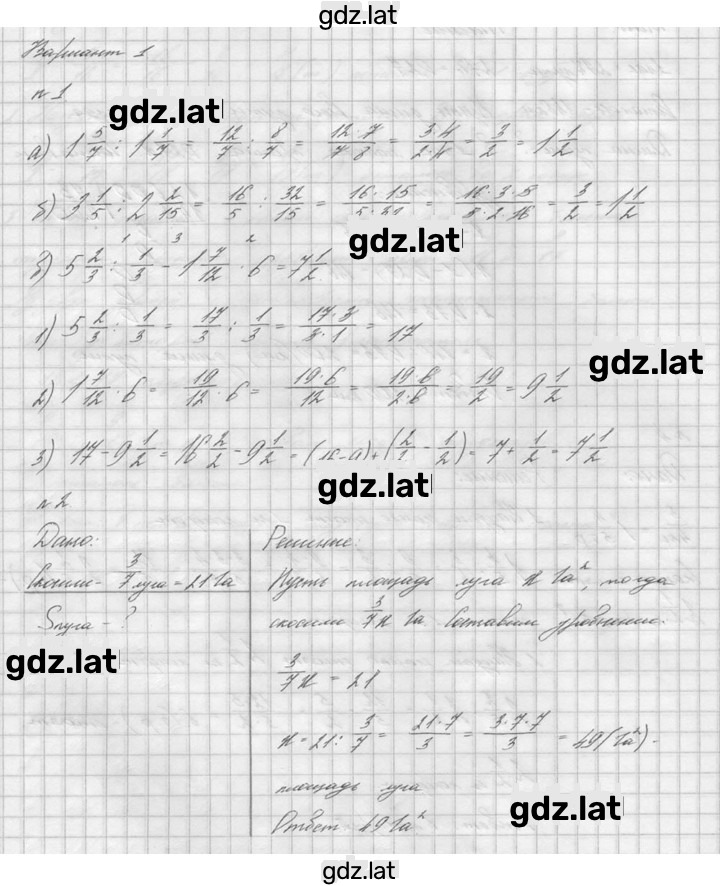 gdz.lat
Вариант 1
n 1
gdz.lat
а) 1 5/7 : 1 1/7 = 12/7 : 8/7 = 12·7/7·8 = 3·4/2·4 = 3/2 = 1 1/2
б) 3 1/5 : 2 2/15 = 16/5 : 32/15 = 16·15/5·32 = 16·3·5/5·2·16 = 3/2 = 1 1/2
gdz.lat
1 3 2
в) 5 2/3 : 1/3 - 1 7/12 · 6 = 7 1/2
1) 5 2/3 : 1/3 = 17/3 : 1/3 = 17·3/3·1 = 17
gdz.lat
2) 1 7/12 · 6 = 19/12 · 6 = 19·6/12 = 19·6/2·6 = 19/2 = 9 1/2
3) 17 - 9 1/2 = 16 2/2 - 9 1/2 = (16-9) + (2/2 - 1/2) = 7 + 1/2 = 7 1/2
gdz.lat
n 2
Дано:
Скосили - 3/7 луга = 21 га
Sлуга - ?
gdz.lat
Решение:
Пусть площадь луга x га², тогда
скосили 3/7 x га. Составим уравнение.
3/7 x = 21
x = 21 : 3/7 = 21·7/3 = 3·7·7/3 = 49 (га²) -
площадь луга
Ответ: 49 га²
gdz.lat
gdz.lat